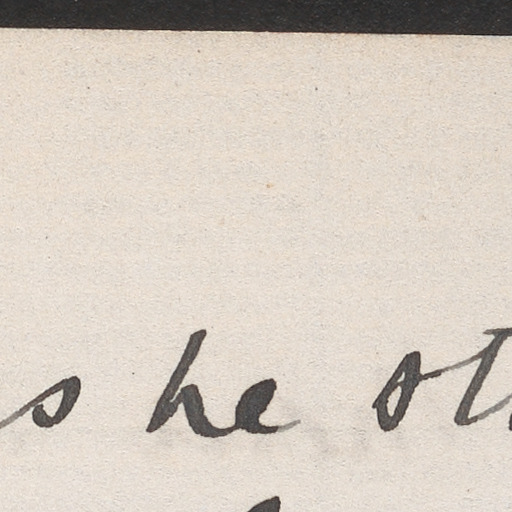 s he ot